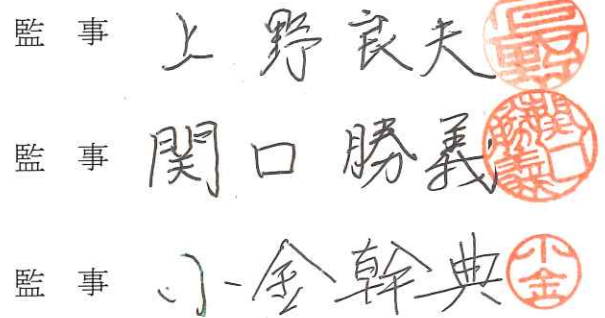 監事 上野良夫 上野
監事 関口勝義 関口勝義
監事 小金幹典 小金